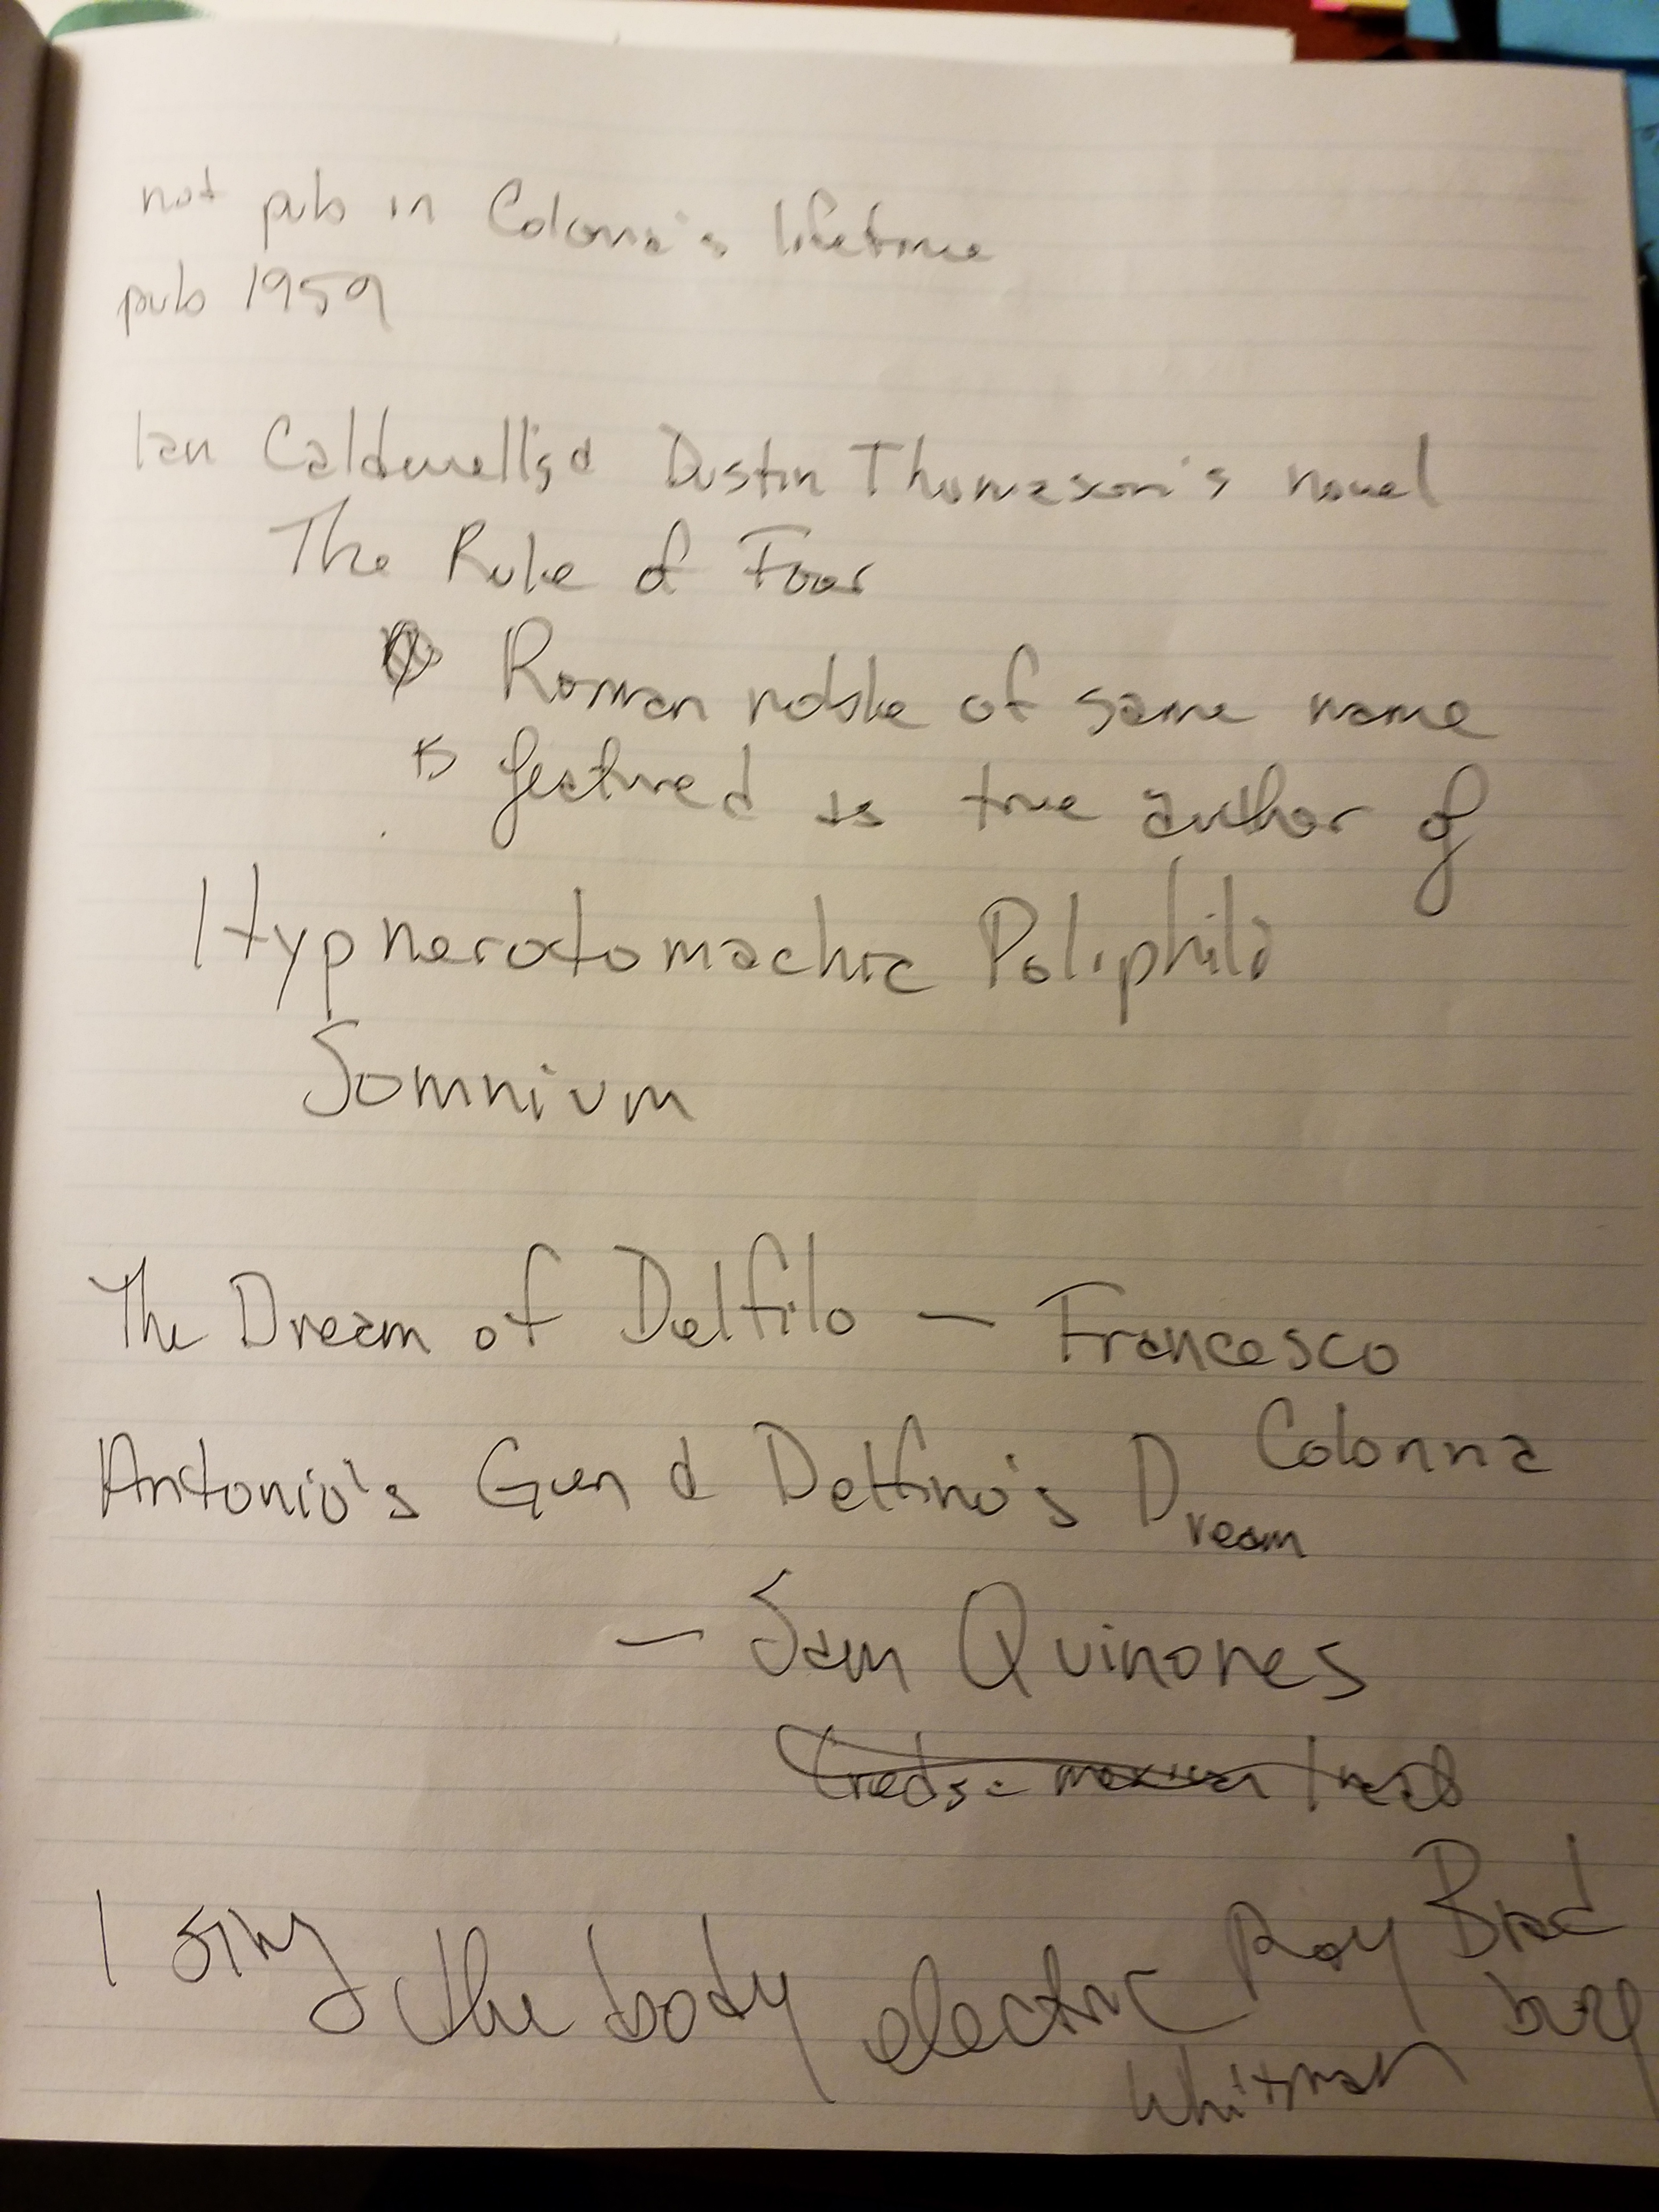 not pub in Colonna's lifetime
pub 1959
Ian Caldwell's & Dustin Thomason's novel
The Rule of Four
Roman noble of same name
is featured as true author of
Hypnerotomachia Poliphili
Somnium
The Dream of Delfilo — Francesco
Colonna
Antonio's Gun & Delfino's Dream
— Sam Quinones
I sing the body electric Ray Brad
bury
Whitman